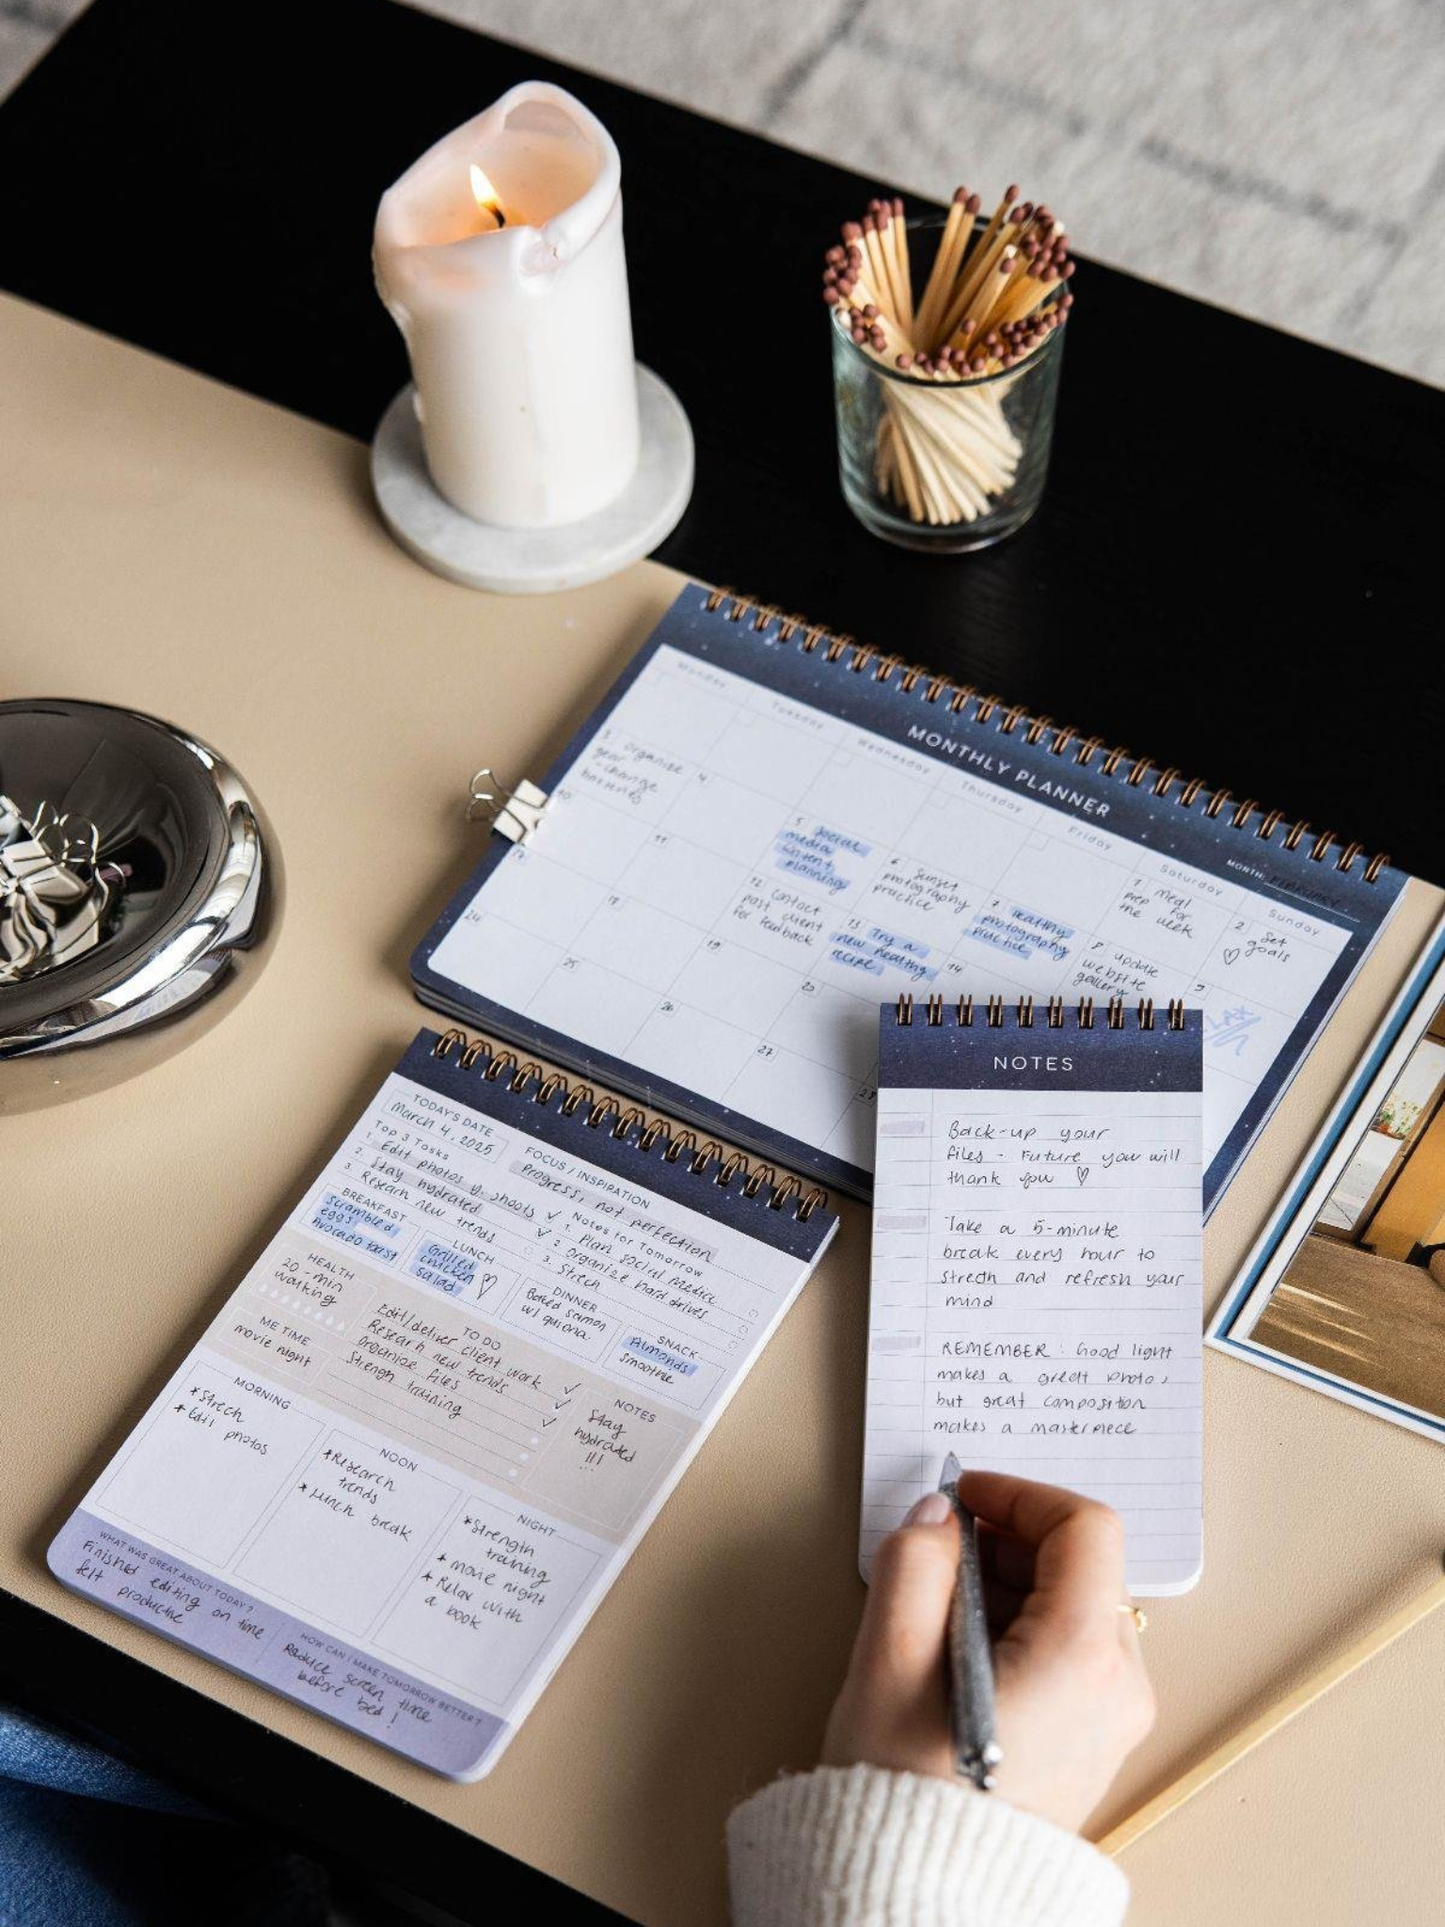 MONTHLY PLANNER
MONTH: February
Monday
Tuesday
Wednesday
Thursday
Friday
Saturday
Sunday
1 meal
prep for
the week
2 Set
goals
3 organize
gear
- change
batteries
4
5 social
media
content
planning
6 Sunset
photography
practice
7 healthy
photography
practice
8 update
website
gallery
9
10
11
12 contact
past client
for feedback
13 Try a
new healthy
recipe
14
17
18
19
20
24
25
26
27
28
TODAY'S DATE
March 4, 2025
FOCUS / INSPIRATION
Progress, not perfection
Top 3 Tasks
1. Edit photos y. shoots
2. Stay hydrated
3. Research new trends
Notes for Tomorrow
1. Plan social media
2. Organize hard drives
3. Strech
BREAKFAST
Scrambled
eggs
Avocado toast
LUNCH
Grilled
chicken
salad
DINNER
Baked salmon
w/ quiona
SNACK
Almonds
smoothie
HEALTH
20-min
walking
ME TIME
movie night
TO DO
Edit/deliver client work
Research new trends
Organize files
Strengh training
NOTES
Stay
hydrated
!!!
MORNING
*Strech
*Edit
photos
NOON
*Research
trends
*Lunch break
NIGHT
*Strength
training
*movie night
*Relax with
a book
WHAT WAS GREAT ABOUT TODAY?
Finished editing on time
felt productive
HOW CAN I MAKE TOMORROW BETTER?
Reduce screen time
before bed!
NOTES
Back-up your
files - Future you will
thank you ♡
Take a 5-minute
break every hour to
strecth and refresh your
mind
REMEMBER: Good light
makes a great photo,
but great composition
makes a masterpiece